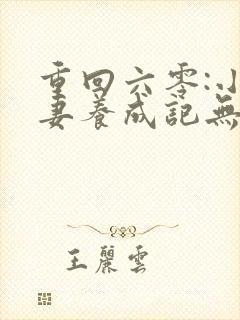 重回六零:小
妻養成記無
王麗雲